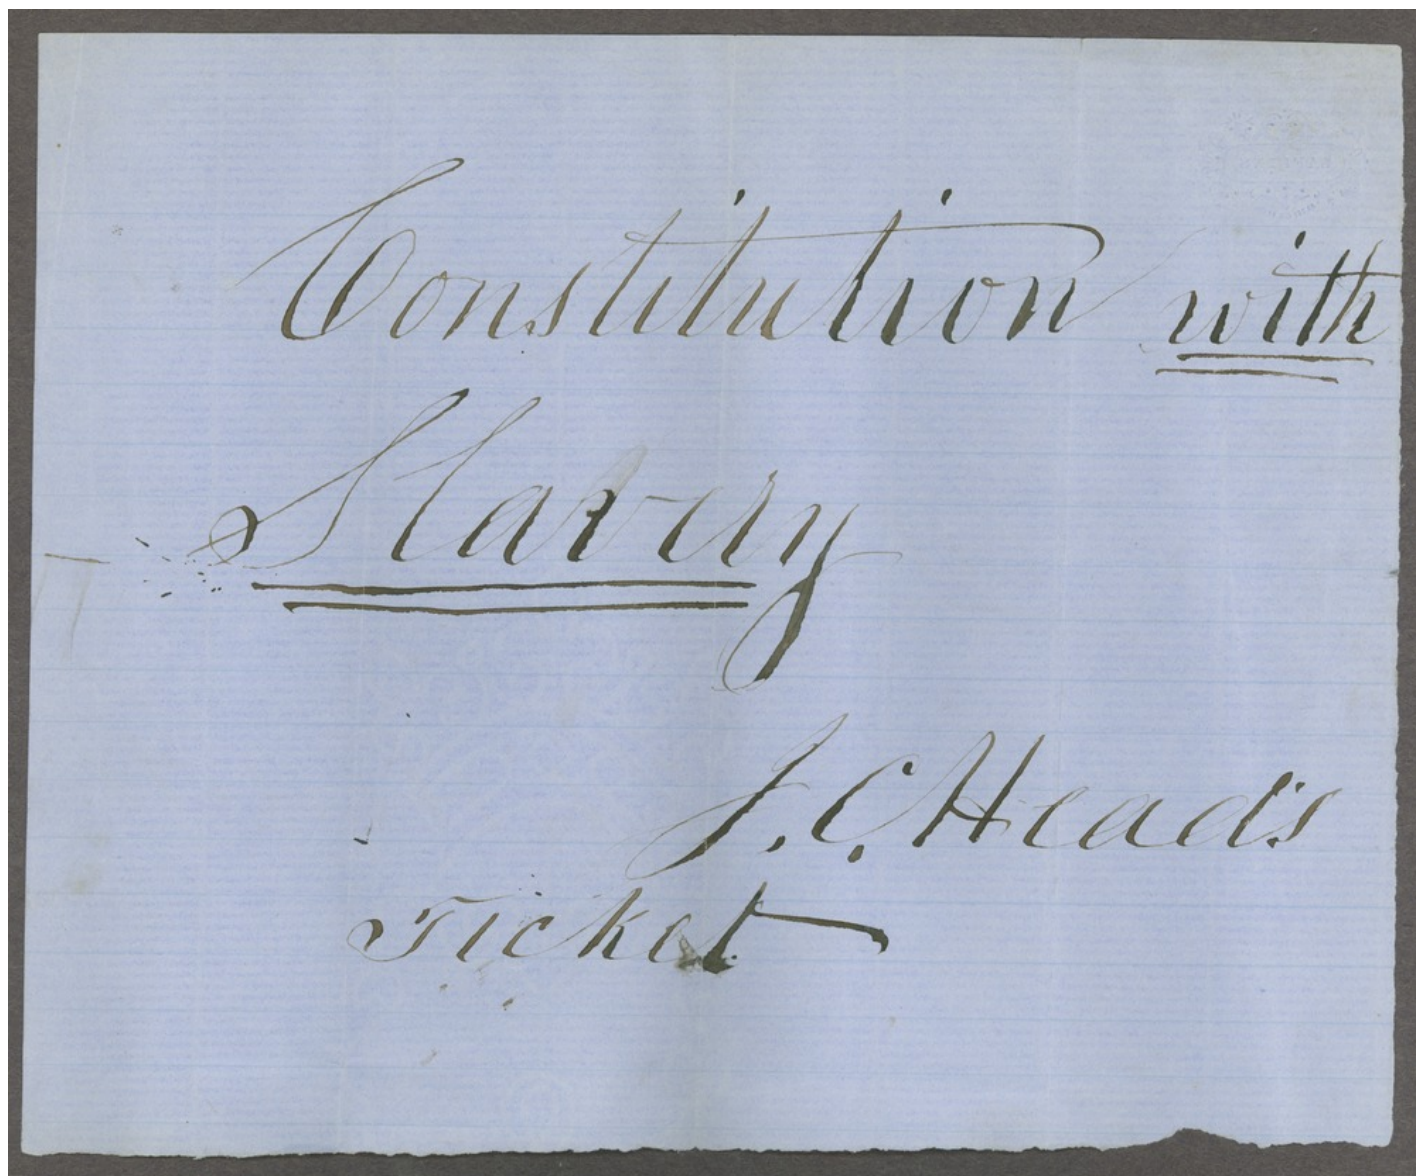 Constitution with
Slavery
J. C. Head's
Ticket